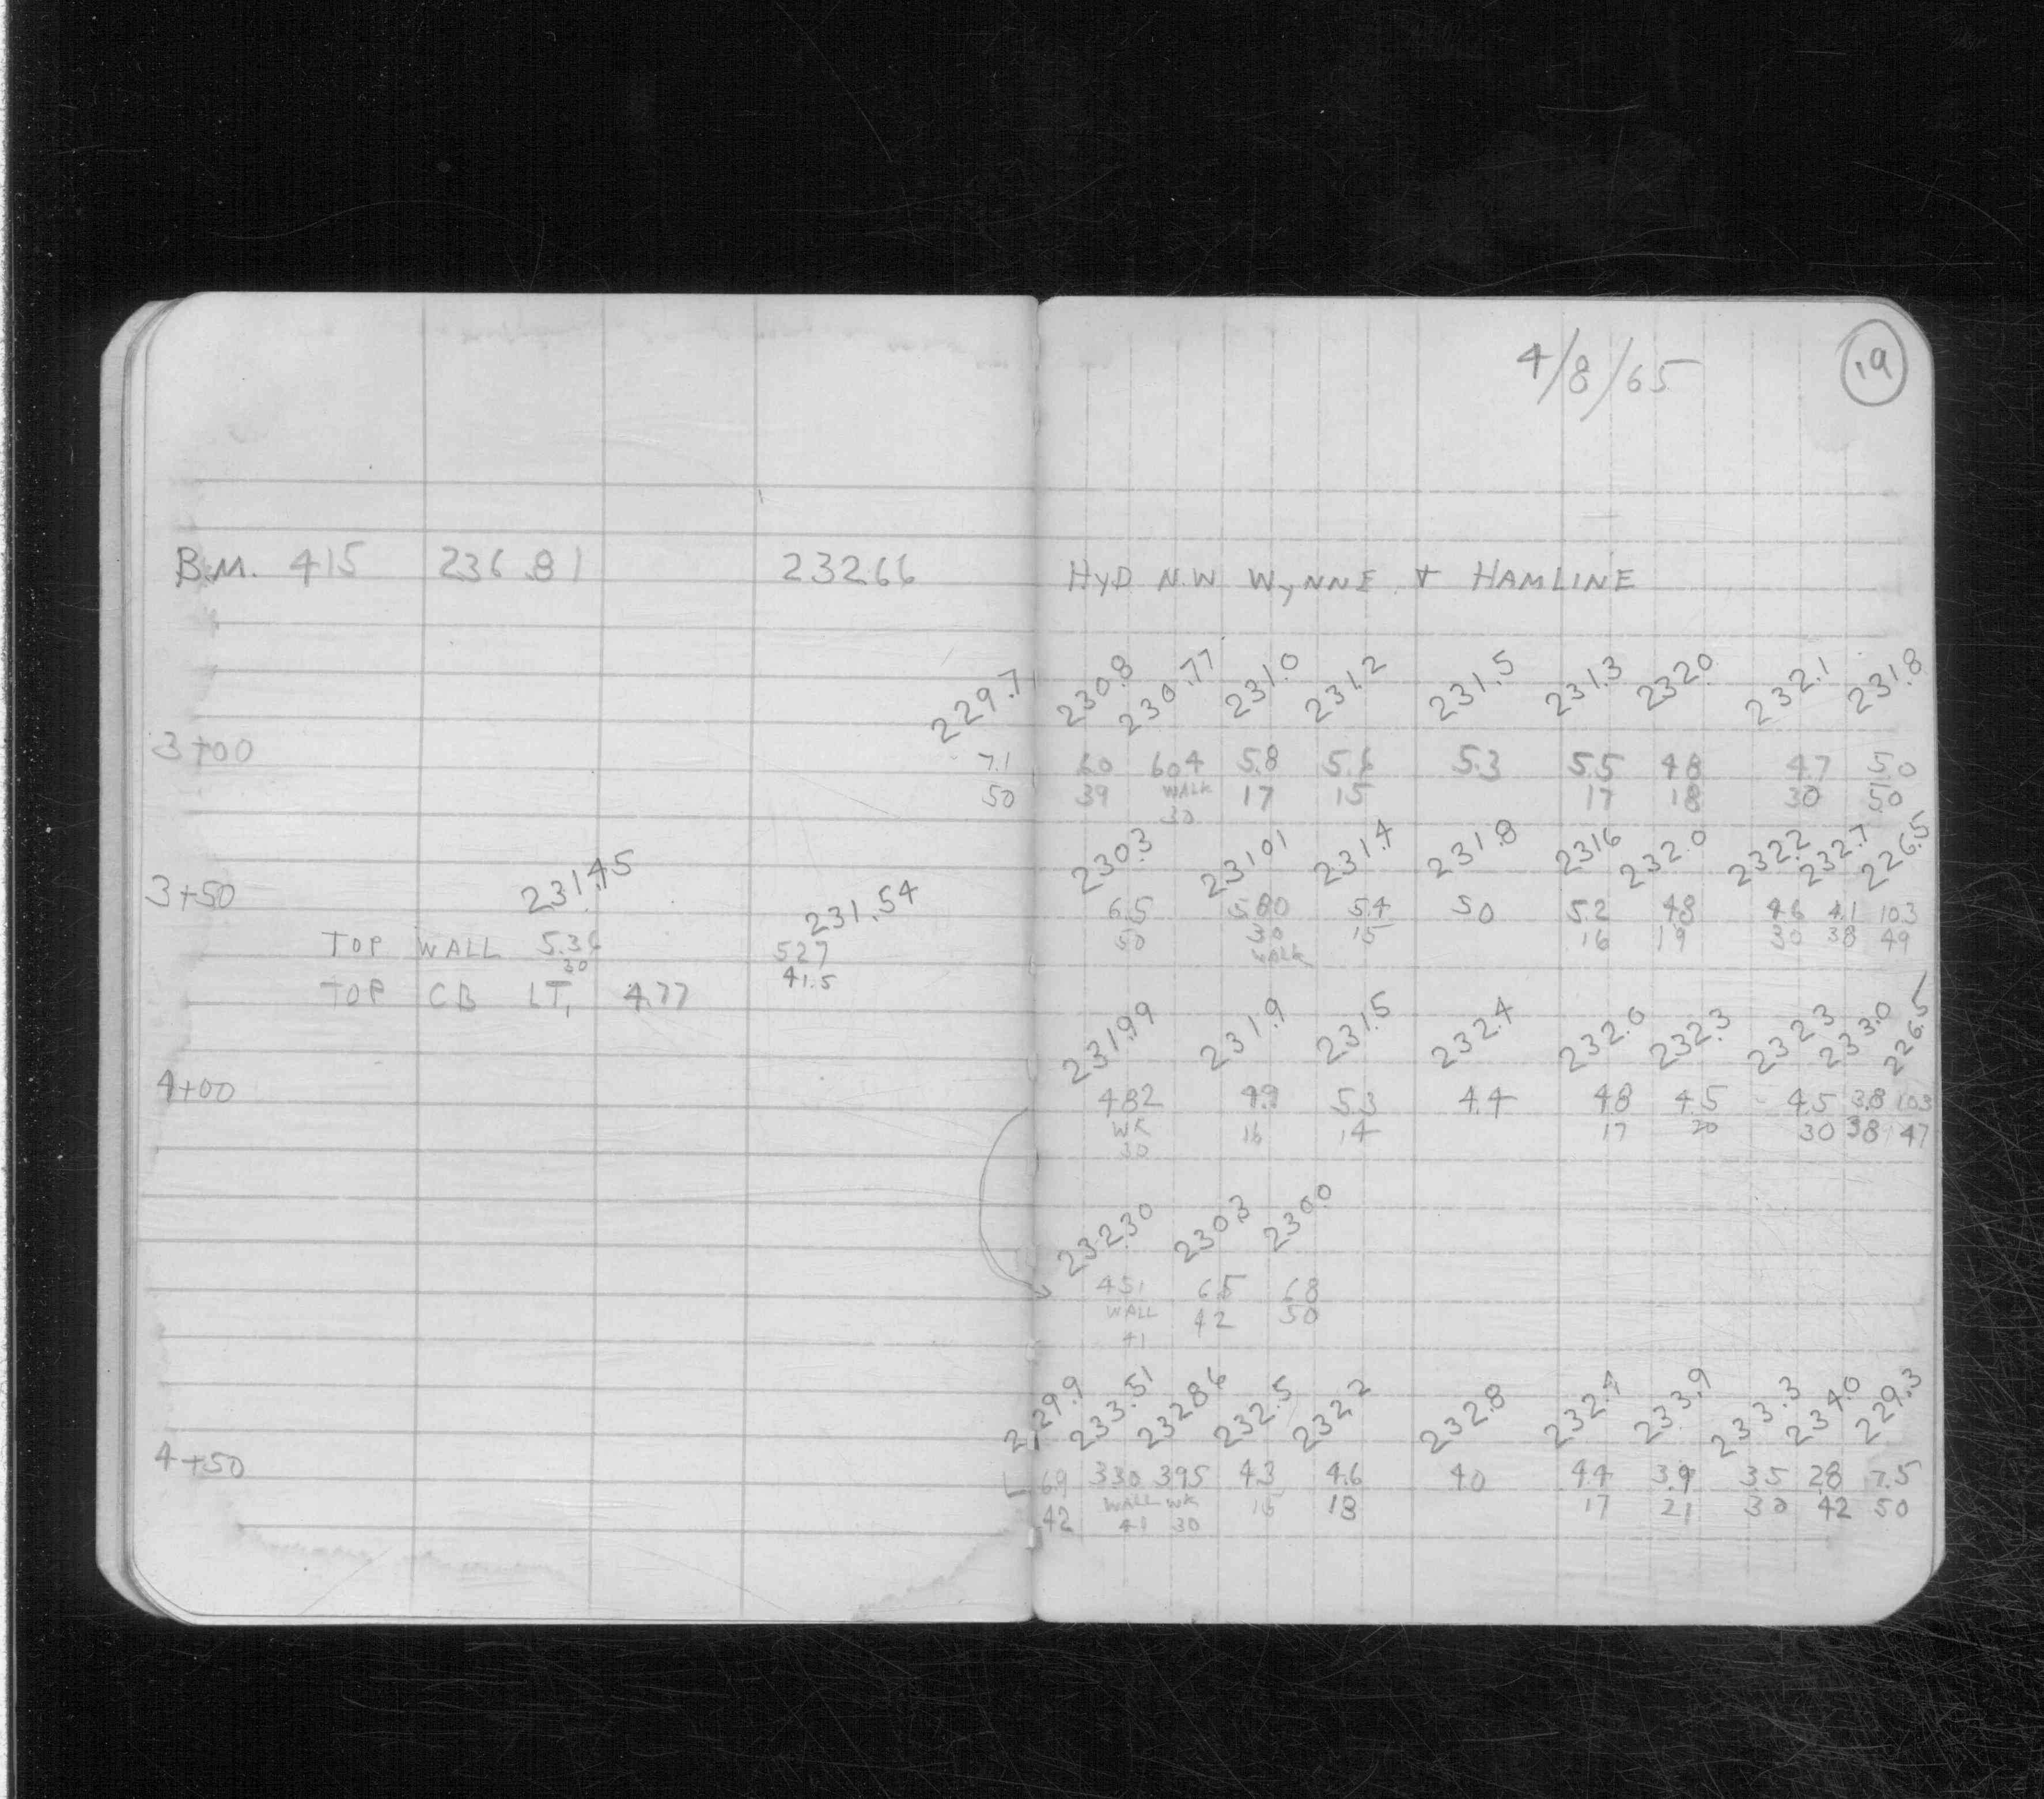 4/8/65 19
B.M. 415 236.81 232.66 HYD N.W WYNNE & HAMLINE
229.7 230.8 230.77 231.0 231.2 231.5 231.3 232.0 232.1 231.8
3+00 7.1 60 604 5.8 5.6 5.3 5.5 4.8 4.7 5.0
50 39 WALK 17 15 17 18 30 50
30
231.45 231.54 230.3 231.01 231.4 231.8 231.6 232.0 232.2 232.7 226.5
3+50 6.5 5.80 5.4 50 5.2 4.8 4.6 4.1 10.3
50 30 15 16 19 30 38 49
WALK
TOP WALL 5.36 527
30 41.5
TOP CB LT. 4.77
231.99 231.9 231.5 232.4 232.0 232.3 232.3 233.0 226.5
4+00 482 4.9 5.3 4.4 4.8 4.5 4.5 3.8 10.3
WK 16 14 17 20 30 38 47
30
232.30 230.3 230.0
451 6.5 6.8
WALL 42 50
41
229.9 233.51 232.86 232.5 232.2 232.8 232.4 233.9 233.3 234.0 229.3
4+50 6.9 330 395 4.3 4.6 40 4.4 3.9 3.5 2.8 7.5
42 WALL WK 16 18 17 21 30 42 50
41 30